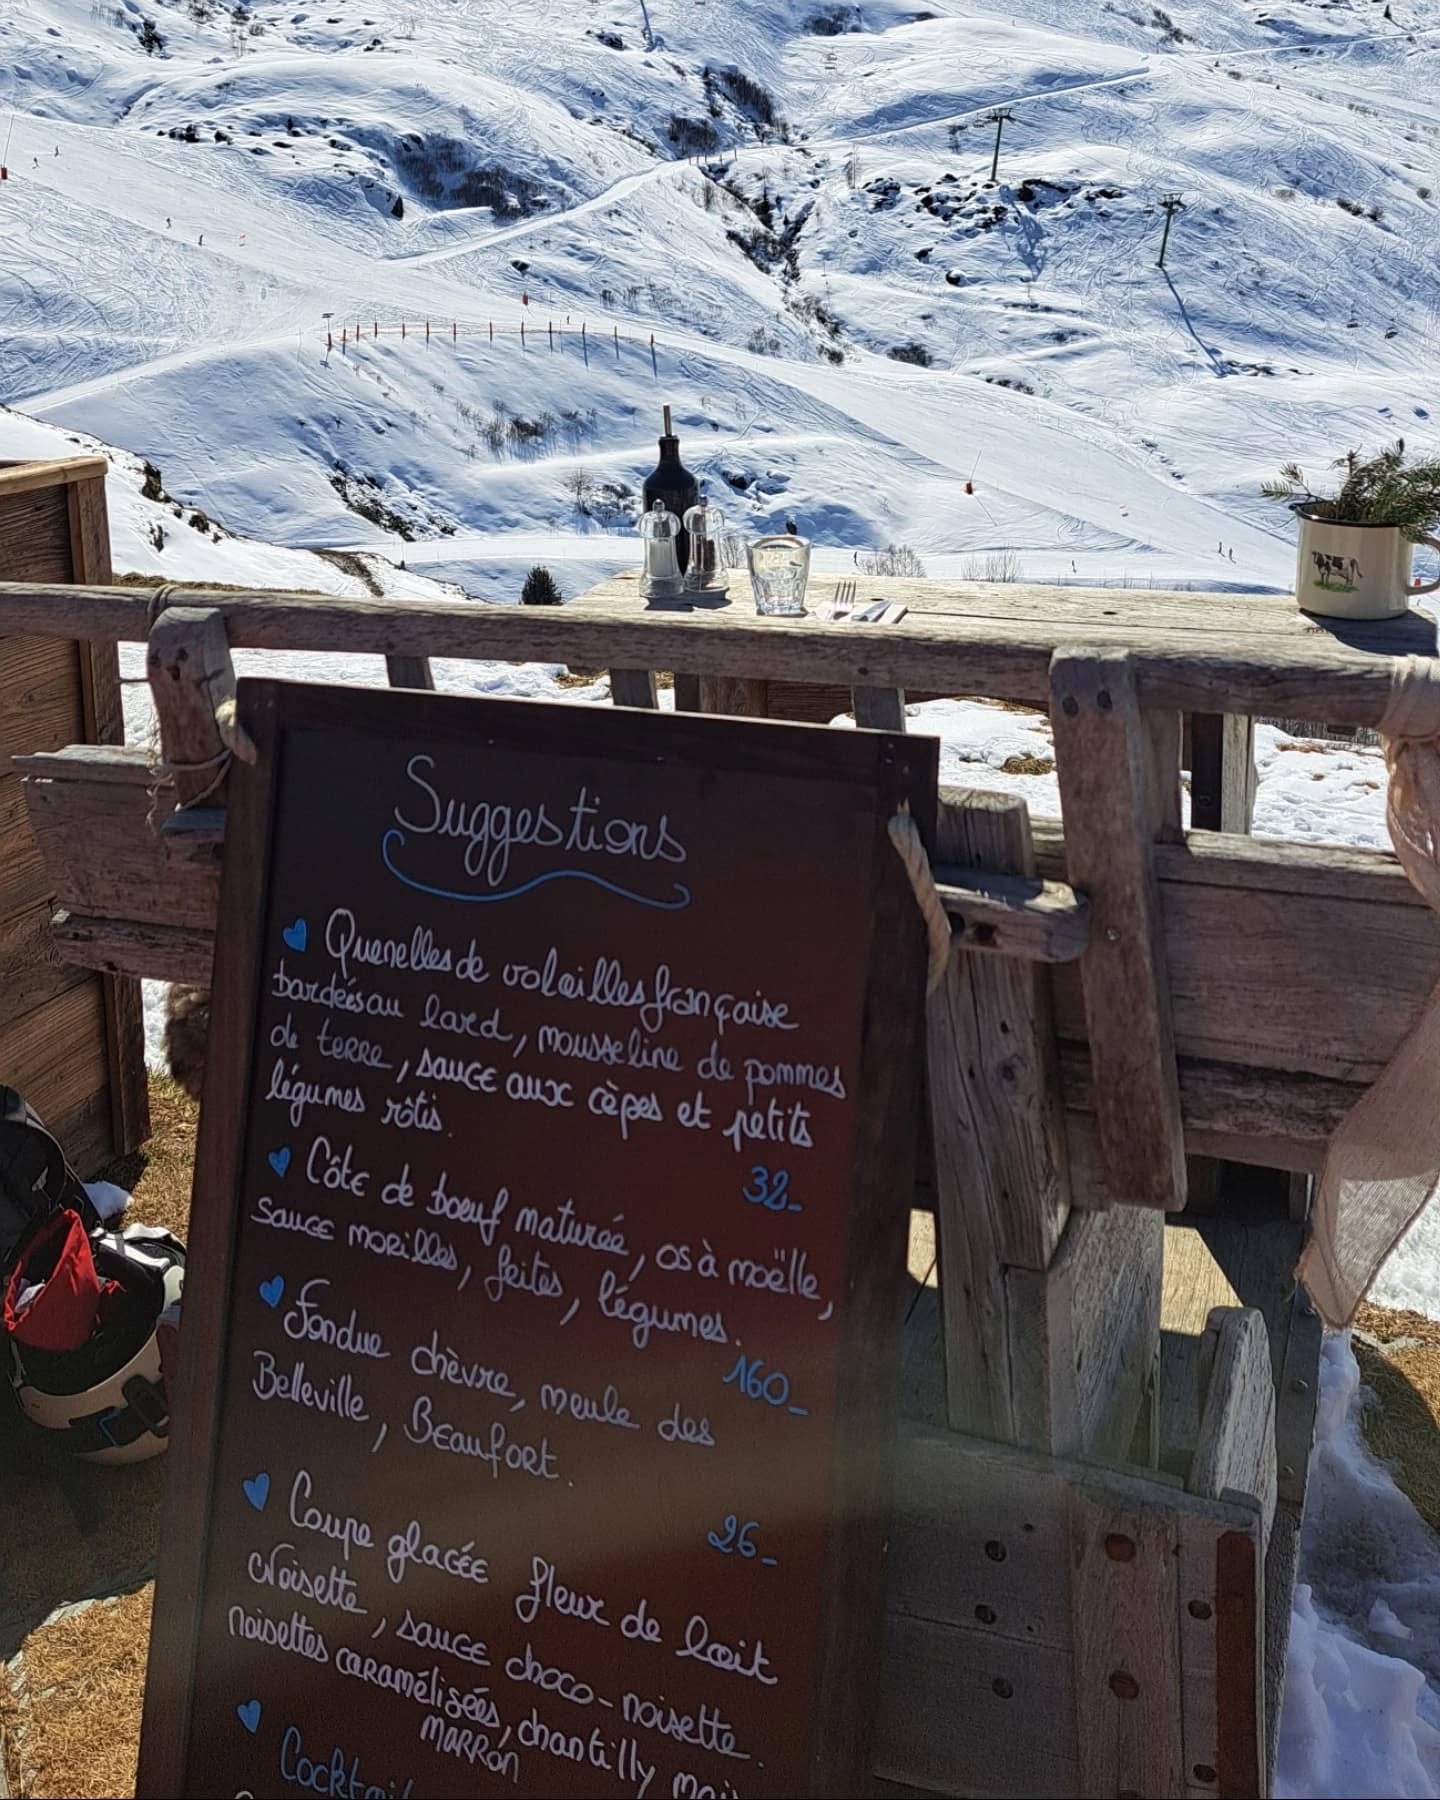 Suggestions
Quenelles de volailles française
bardées au lard, mousseline de pommes
de terre, sauce aux cèpes et petits
légumes rôtis.
32_
Côte de boeuf maturée, os à moëlle,
sauce morilles, frites, légumes.
160_
Fondue chèvre, meule des
Belleville, Beaufort.
26_
Coupe glacée fleur de lait
noisette, sauce choco-noisette.
noisettes caramélisées, chantilly
MARRON
Cocktail